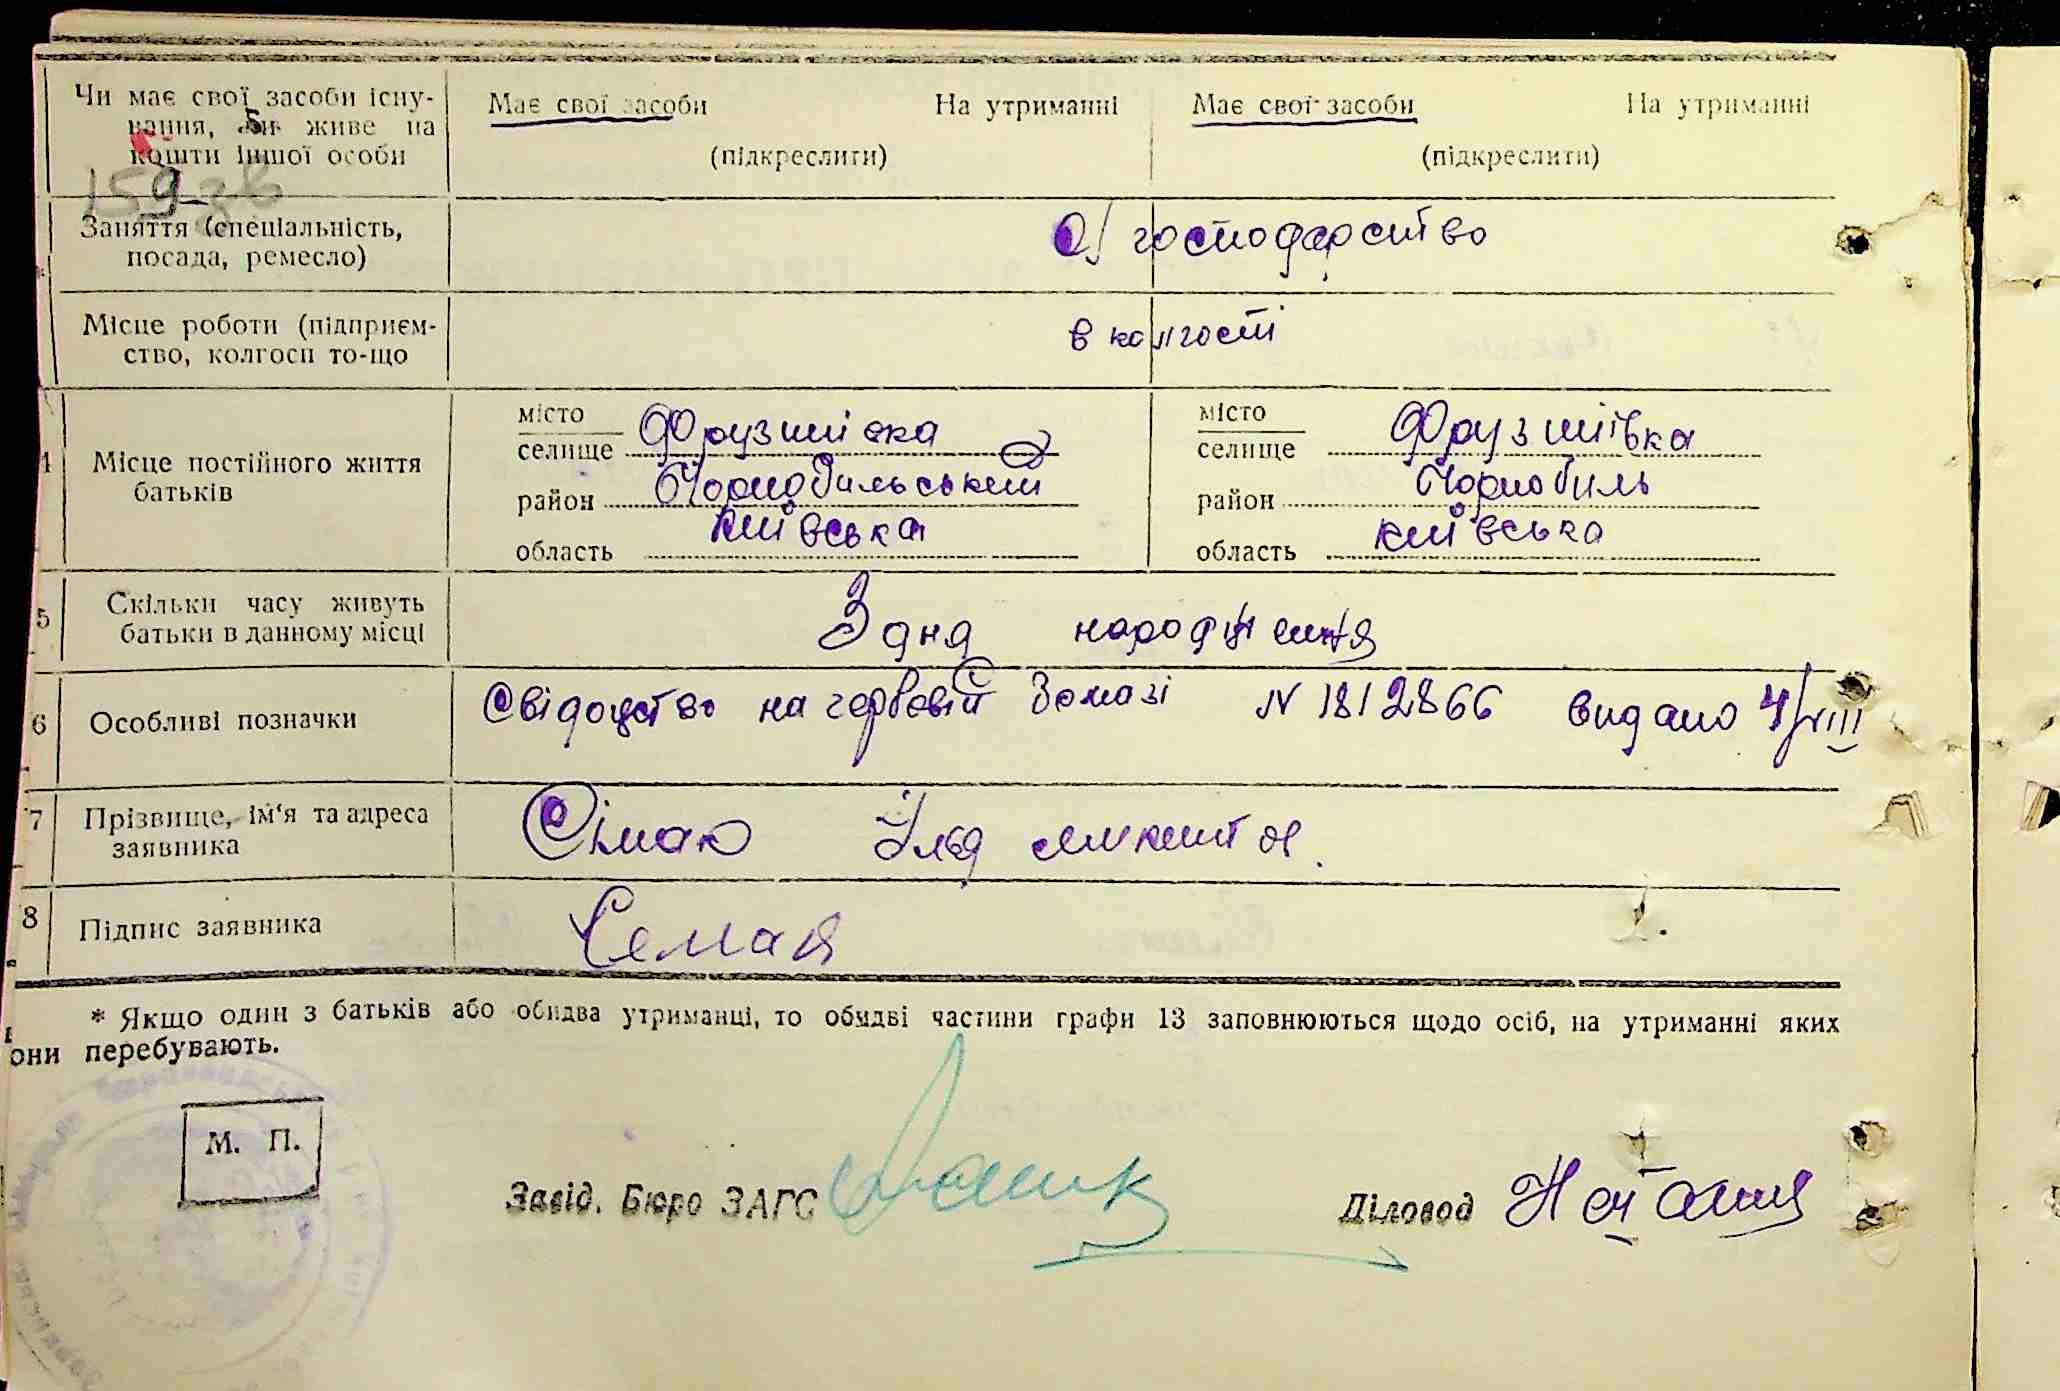 Чи має свої засоби існу-
вання, чи живе на
кошти іншої особи
Має свої засоби На утриманні Має свої засоби На утриманні
(підкреслити) (підкреслити)
159 зв
Заняття (спеціальність,
посада, ремесло)
С/ господарство
Місце роботи (підприєм-
ство, колгосп то-що
в колгоспі
4 Місце постійного життя
батьків
місто
селище Фрузинівка
район Чорнобильський
область Київська
місто
селище Фрузинівка
район Чорнобиль
область Київська
5 Скільки часу живуть
батьки в данному місці
З дня народження
6 Особливі позначки
Свідоцтво на гербовій бомазі N 1812866 видано 4/VIII
7 Прізвище, ім'я та адреса
заявника
Сімаю
8 Підпис заявника
Семая
* Якщо один з батьків або обидва утриманці, то обидві частини графи 13 заповнюються щодо осіб, на утриманні яких
они перебувають.
М. П.
Завід. Бюро ЗАГС
Діловод